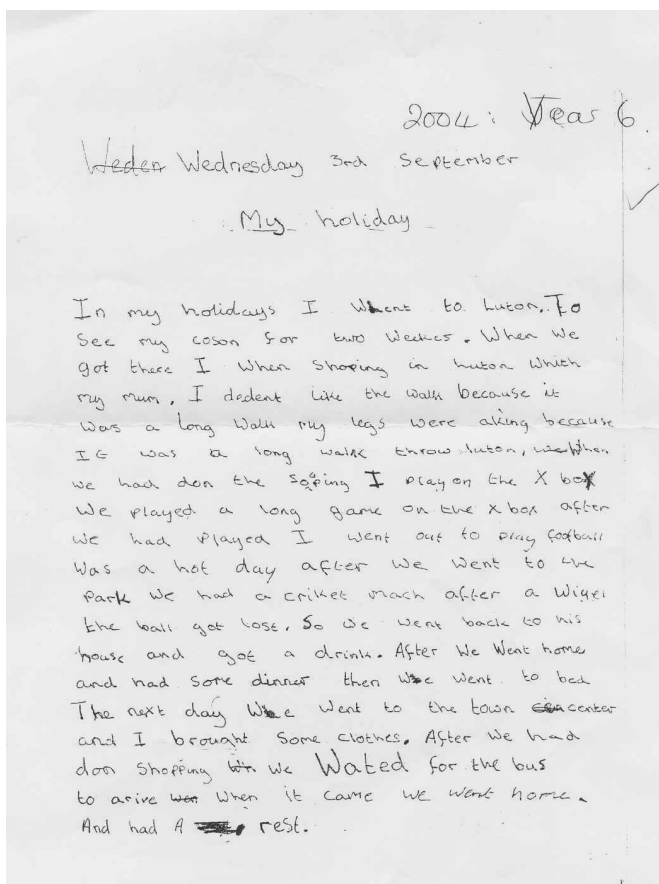 2004: Year 6.
Weden Wednesday 3rd September
My holiday
In my holidays I Went to Luton. To
See my coson for two Weekes. When we
got there I When Shoping in Luton Which
my mum, I dedent like the walk because it
was a long Walk my legs were aking because
It was a long walk throw luton, When
we had don the Soping I play on the X box
We played a long game on the x box after
we had played I went out to play football
Was a hot day after we went to the
Park we had a criket mach after a
the ball got lost. So we went back to his
house and got a drink. After We Went home
and had some dinner then We went to bed
The next day We Went to the town center
and I brought Some clothes. After We had
don Shopping We Wated for the bus
to arive When it came we went home.
And had A rest.